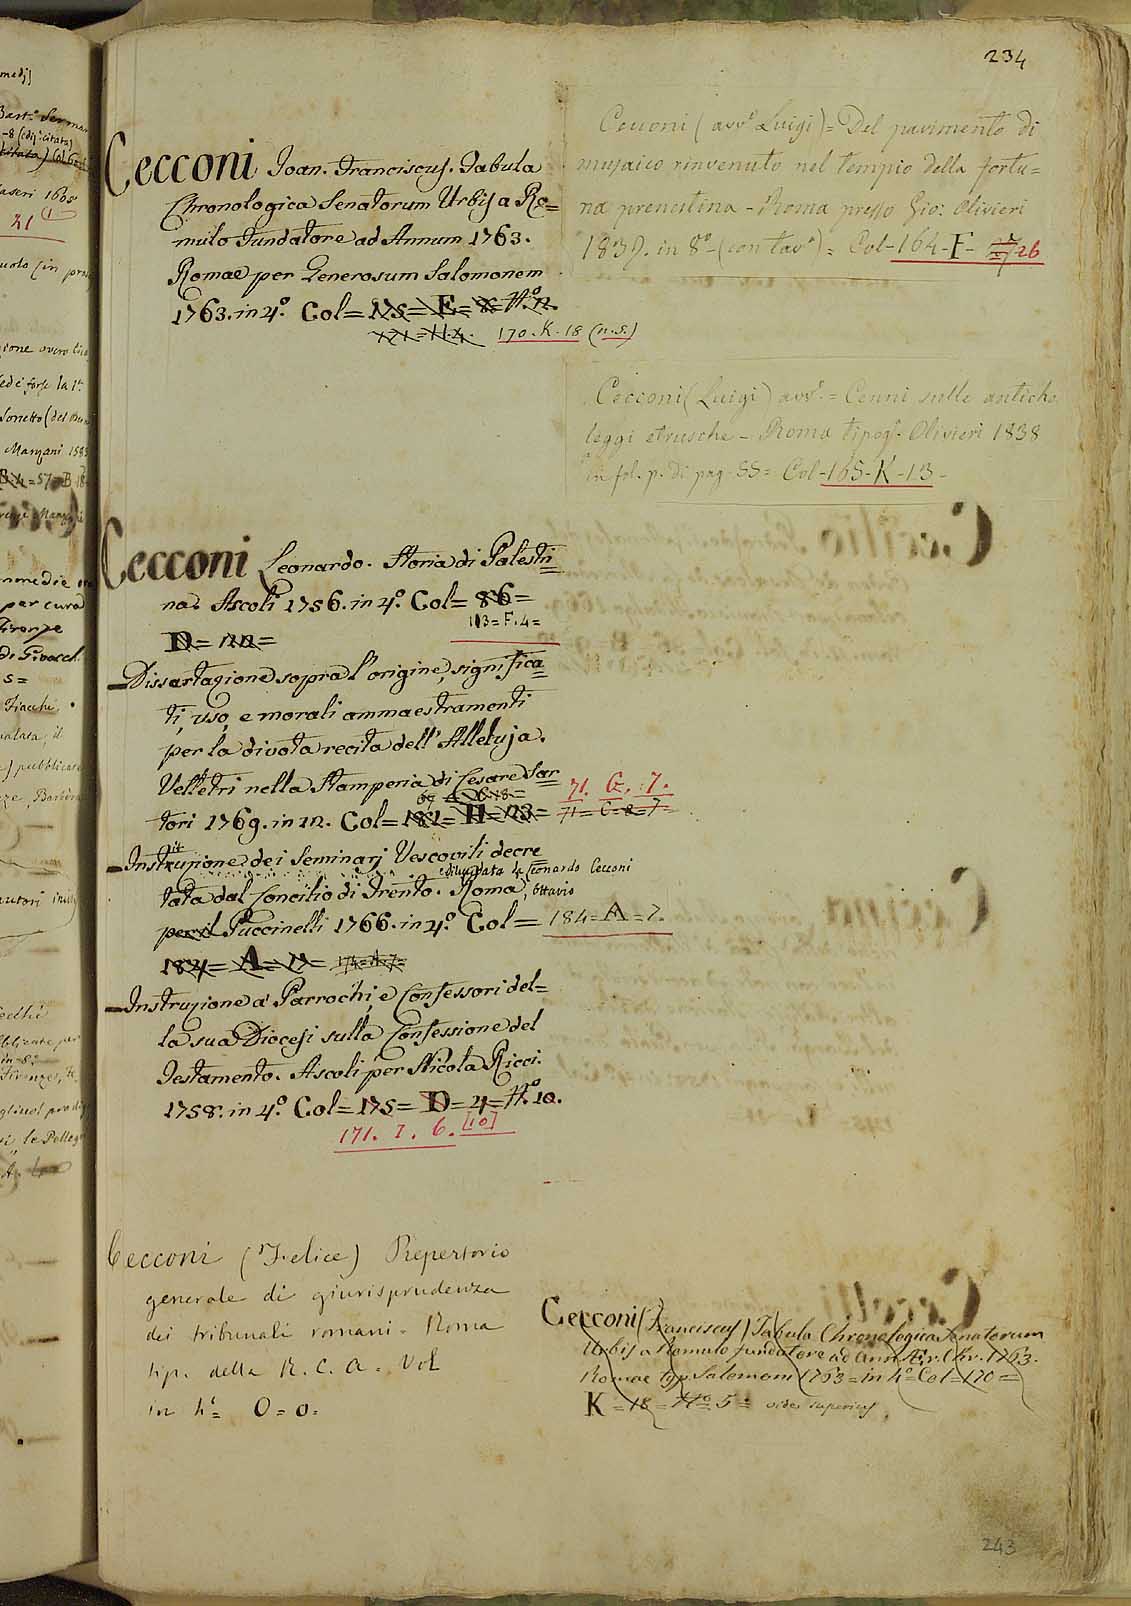 234
Cecconi Joan. Franciscus. Tabula
Chronologica Senatorum Urbis a Ro=
mulo Fundatore ad Annum 1763.
Romae per Generosum Salomonem
1763. in 4.° Col= 175= E= 8= N.° 12.
171=H.4. 170. K. 18 (n.5.)
Cecconi (avv.° Luigi) = Del pavimento di
musaico rinvenuto nel tempio della fortu=
na prenestina - Roma presso Gio: Olivieri
1837. in 8.° (con tav.e) = Col-164-F- 26
Cecconi (Luigi) avv.° = Cenni sulle antiche
leggi etrusche - Roma tipog. Olivieri 1838
in fol. p. di pag. 55= Col-165-K-13-
Cecconi Leonardo. Storia di Palestri
na. Ascoli 1756. in 4.° Col= 86=
113=F.4=
D= 122=
Dissertazione sopra l'origine, significa
ti, uso, e morali ammaestramenti
per la divota recita dell'Alleluja.
Velletri nella Stamperia di Cesare Sar
tori 1769. in 12. Col= 182= H= 123=
71. C. 7.
71=C=2=7=
Instituzione dei Seminarj Vescovili decre
tata dal Concilio di Trento. Roma,
dilucidata da Leonardo Cecconi
Ottavio
per il Puccinelli 1766. in 4.° Col= 184=A=7.
184= A= 17= 174=A.7=
Instruzione a' Parrochi, e Confessori del=
la sua Diocesi sulla Confessione del
Testamento. Ascoli per Nicola Ricci.
1758. in 4.° Col= 175= D= 4= N.° 10.
171. I. 6. [10]
Cecconi (Felice) Repertorio
generale di giurisprudenza
dei tribunali romani. Roma
tip. della R. C. A. Vol
in 4.° O=o=
Cecconi (Franciscus) Tabula Chronologica Senatorum
Urbis a Romulo fundatore ad ann. Ær. Chr. 1763.
Romae typ. Salomoni 1763=in 4.°=Col=170=
K=18=N.° 5= vide superius
243